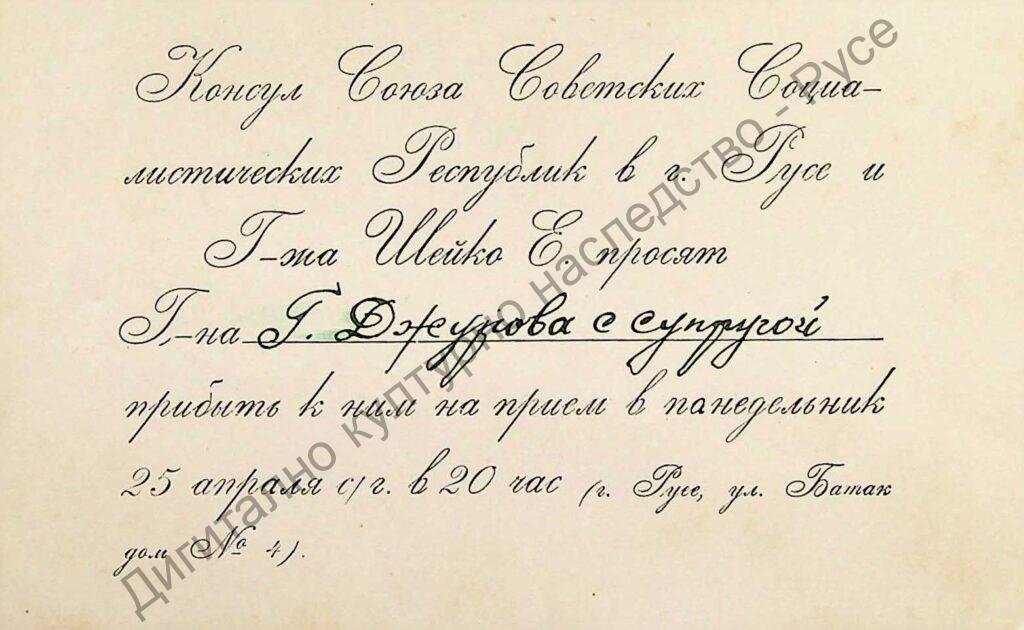 Консул Союза Советских Социа-
листических Республик в г. Русе и
Г-жа Шейко Е. просят
Г.-на Г. Джурова с супругой
прибыть к ним на прием в панедельник
25 апраля с/г. в 20 час (г. Русе, ул. Батак
дом № 4).
Дигитално културно наследство - Русе